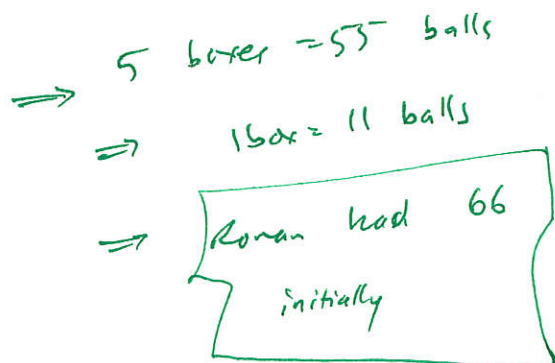 ⇒ 5 boxes = 55 balls
⇒ 1 box = 11 balls
⇒ Roman had 66
initially